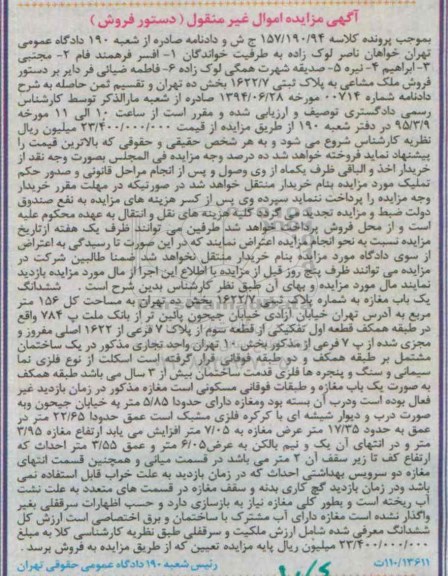 آگهی مزایده اموال غیر منقول ( دستور فروش )
بموجب پرونده کلاسه ۱۵۷/۱۹۰/۹۴ ج ش و دادنامه صادره از شعبه ۱۹۰ دادگاه عمومی
تهران خواهان ناصر لوک زاده به طرفیت خواندگان ۱- افسر فرهمند فام ۲- مجتبی
۳- ابراهیم ۴- نیره ۵- صدیقه شهرت همگی لوک زاده ۶- فاطمه ضیائی فر دایر بر دستور
فروش ملک مشاعی به پلاک ثبتی ۱۶۲۲/۷ بخش ده تهران و تقسیم ثمن حاصله به شرح
دادنامه شماره ۰۰۷۱۴ مورخه ۱۳۹۴/۰۶/۲۸ صادره از شعبه مارالذکر توسط کارشناس
رسمی دادگستری توصیف و ارزیابی شده و مقرر است از ساعت ۱۰ الی ۱۱ مورخه
۹۵/۳/۹ در دفتر شعبه ۱۹۰ از طریق مزایده از قیمت ۲۳/۴۰۰/۰۰۰/۰۰۰ میلیون ریال
نظریه کارشناس شروع می شود و به هر شخص حقیقی و حقوقی که بالاترین قیمت را
پیشنهاد نماید فروخته خواهد شد ده درصد وجه مزایده فی المجلس بصورت وجه نقد از
خریدار اخذ و الباقی ظرف یکماه از وی وصول و پس از انجام مراحل قانونی و صدور حکم
تملیک مورد مزایده بنام خریدار منتقل خواهد شد در صورتیکه در مهلت مقرر خریدار
وجه مزایده را پرداخت ننماید سپرده وی پس از کسر هزینه های مزایده به نفع صندوق
دولت ضبط و مزایده تجدید می گردد کلیه هزینه های نقل و انتقال به عهده محکوم علیه
است و از محل فروش پرداخت خواهد شد طرفین می توانند ظرف یک هفته ازتاریخ
مزایده نسبت به نحو انجام مزایده اعتراض نمایند که در این صورت تا رسیدگی به اعتراض
از سوی دادگاه مورد مزایده بنام خریدار منتقل نخواهد شد ضمنا طالبین شرکت در
مزایده می توانند ظرف پنج روز قبل از مزایده با اطلاع این اجرا از مال مورد مزایده بازدید
نمایند مال مورد مزایده و بهای آن طبق نظر کارشناس بدین شرح است ششدانگ
یک باب مغازه به شماره پلاک ثبتی ۱۶۲۲/۷ بخش ده تهران به مساحت کل ۱۵۶ متر
مربع به آدرس تهران خیابان آزادی خیابان جیحون پائین تر از بانک ملت پ ۷۸۴ واقع
در طبقه همکف قطعه اول تفکیکی از قطعه سوم از پلاک ۷ فرعی از ۱۶۲۲ اصلی مفروز و
مجزی شده از پ ۷ فرعی از مذکور بخش ۱۰ تهران واحد تجاری مذکور در یک ساختمان
مشتمل بر طبقه همکف و دو طبقه فوقانی قرار گرفته است اسکلت از نوع فلزی نما
سیمانی و سنگ و پنجره ها فلزی قدمت ساختمان بیش از ۳ سال می باشد طبقه همکف
به صورت یک باب مغازه و طبقات فوقانی مسکونی است مغازه مذکور در زمان بازدید غیر
فعال بوده است ودرب آن بسته بود ومغازه دارای حدودا ۵/۸۵ متر به خیابان جیحون وبه
صورت درب و دیوار شیشه ای با کرکره فلزی مشبک است عمق حدودا ۲۲/۶۵ متر در
عمق به حدود ۱۷/۳۵ متر عرض مغازه به ۷/۰۵ متر افزایش می یابد ارتفاع مغازه ۳/۹۵
متر و در انتهای آن یک و نیم بالکن به عرض ۶/۰۵ متر و عمق ۳/۵۵ متر احداث که
ارتفاع کف تا زیر سقف آن ۲ متر می باشد در قسمت میانی و همچنین قسمت انتهای
مغازه دو سرویس بهداشتی احداث که در زمان بازدید به علت خراب قابل استفاده نمی
باشد ودر زمان بازدید گچ کاری بدنه و سقف مغازه در قسمت های متعدد به علت نشت
آب ریخته است و بطور کلی مغازه نیاز به بازسازی دارد و حسب اظهارات سرقفلی بغیر
واگذار نشده است مغازه دارای آب مشترک با ساختمان و برق اختصاصی است ارزش کل
ششدانگ معرفی شده شامل ارزش ملکیت و سرقفلی طبق نظریه کارشناسی کلا به مبلغ
۲۳/۴۰۰/۰۰۰/۰۰۰ میلیون ریال پایه مزایده تعیین که از طریق مزایده به فروش برسد .
۱۱۰/۱۳۶۱۱ت رئیس شعبه ۱۹۰ دادگاه عمومی حقوقی تهران